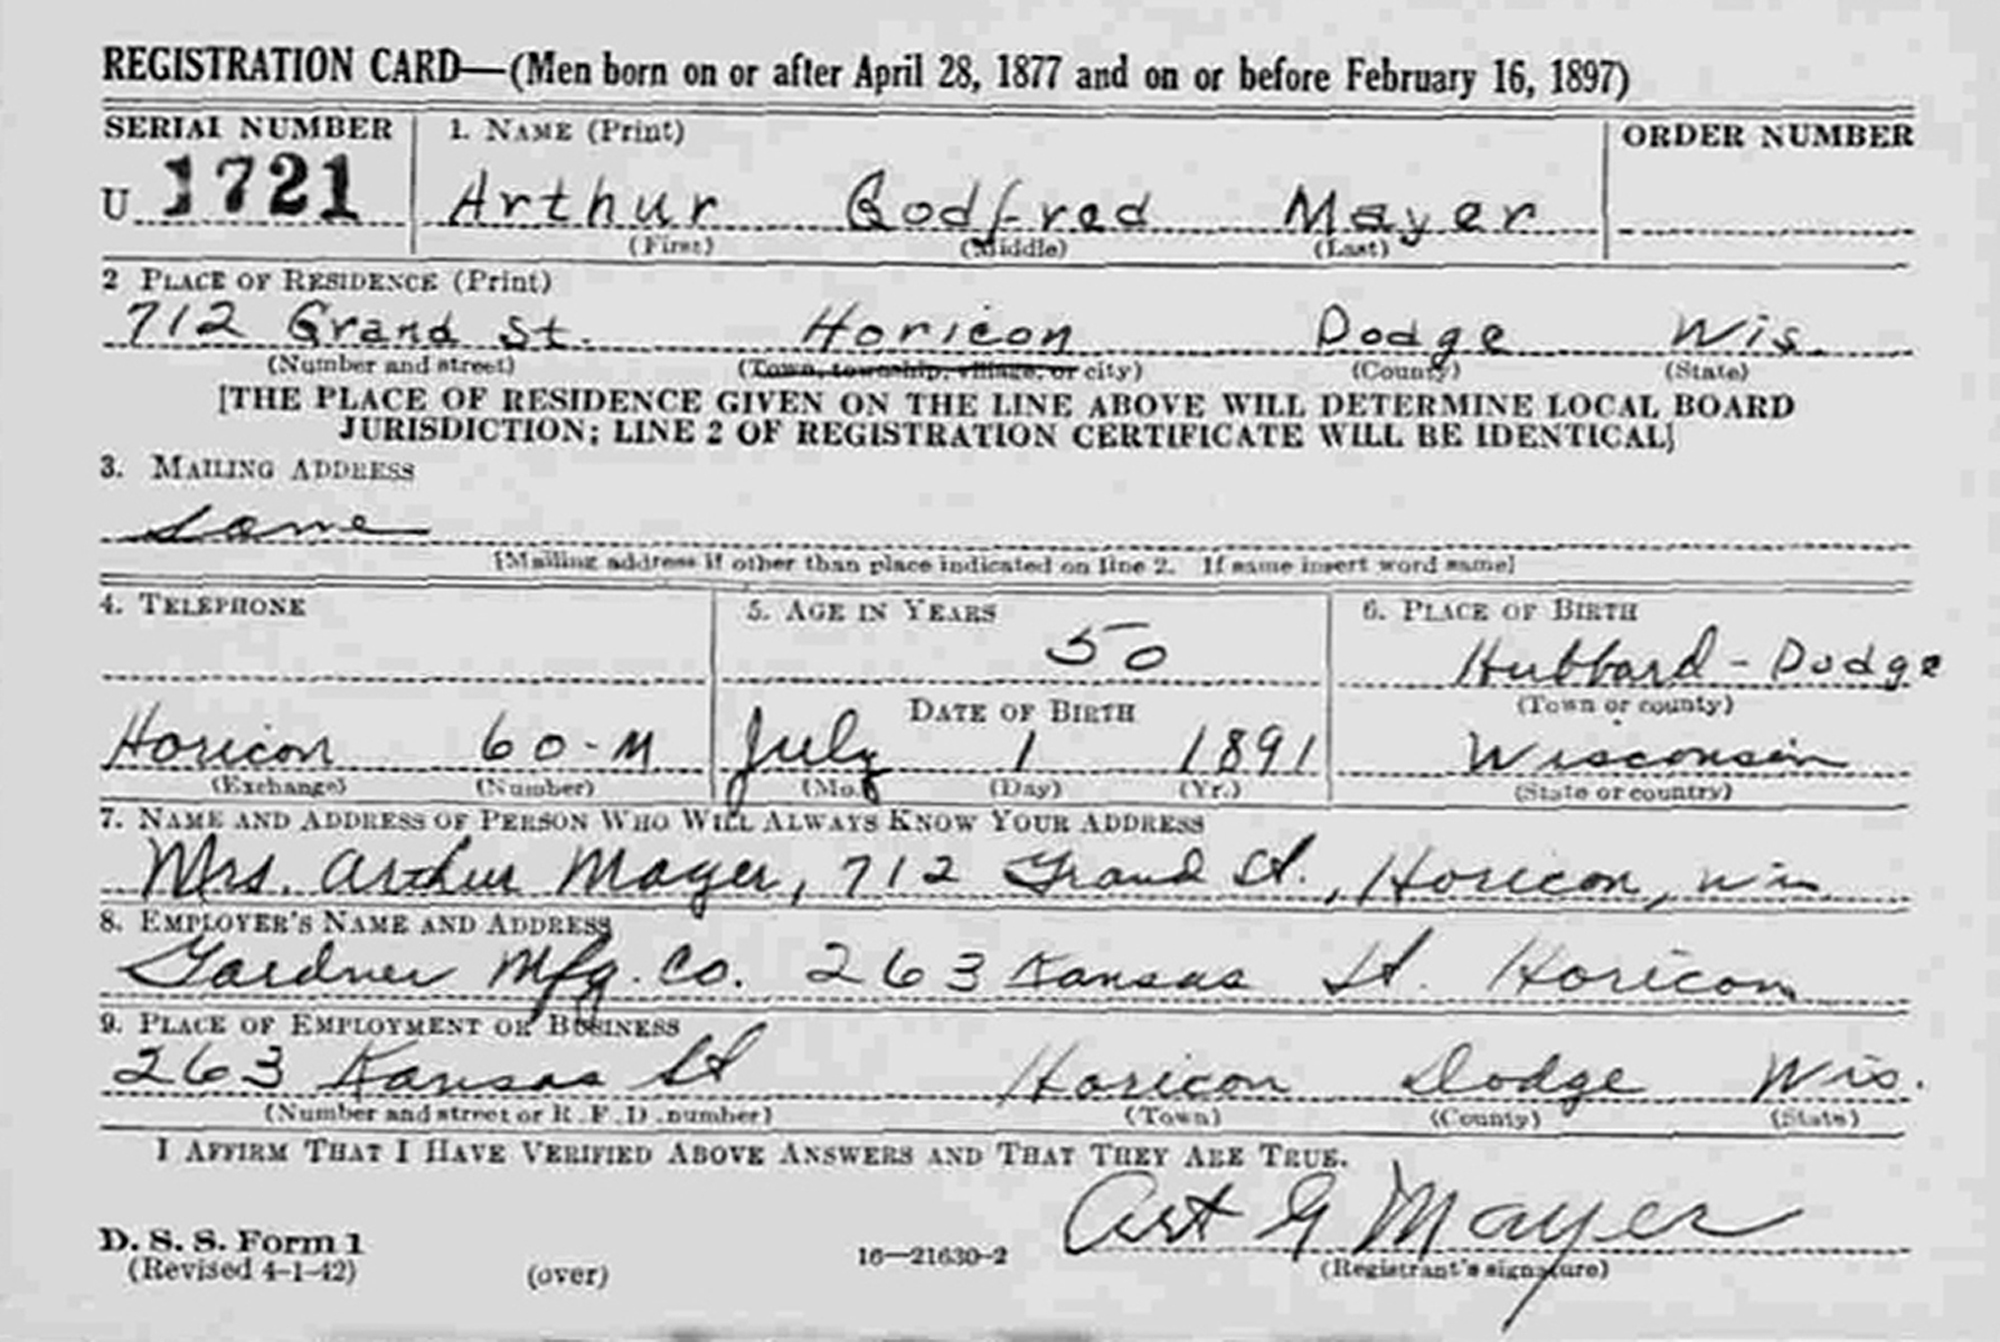 REGISTRATION CARD—(Men born on or after April 28, 1877 and on or before February 16, 1897)
SERIAL NUMBER 1. NAME (Print) ORDER NUMBER
U 1721 Arthur Godfred Mayer
(First) (Middle) (Last)
2 PLACE OF RESIDENCE (Print)
712 Grand St. Horicon Dodge Wis.
(Number and street) (Town, township, village, or city) (County) (State)
[THE PLACE OF RESIDENCE GIVEN ON THE LINE ABOVE WILL DETERMINE LOCAL BOARD
JURISDICTION; LINE 2 OF REGISTRATION CERTIFICATE WILL BE IDENTICAL]
3. MAILING ADDRESS
Same
[Mailing address if other than place indicated on line 2. If same insert word same]
4. TELEPHONE 5. AGE IN YEARS 6. PLACE OF BIRTH
50 Hubbard - Dodge
DATE OF BIRTH (Town or county)
Horicon 60-M July 1 1891 Wisconsin
(Exchange) (Number) (Mo.) (Day) (Yr.) (State or country)
7. NAME AND ADDRESS OF PERSON WHO WILL ALWAYS KNOW YOUR ADDRESS
Mrs. Arthur Mayer, 712 Grand St., Horicon, Wis
8. EMPLOYER'S NAME AND ADDRESS
Gardner Mfg. Co. 263 Kansas St. Horicon
9. PLACE OF EMPLOYMENT OR BUSINESS
263 Kansas St Horicon Dodge Wis.
(Number and street or R. F. D. number) (Town) (County) (State)
I AFFIRM THAT I HAVE VERIFIED ABOVE ANSWERS AND THAT THEY ARE TRUE.
Art G Mayer
D. S. S. Form 1
(Revised 4-1-42) (over) 16—21630-2 (Registrant's signature)